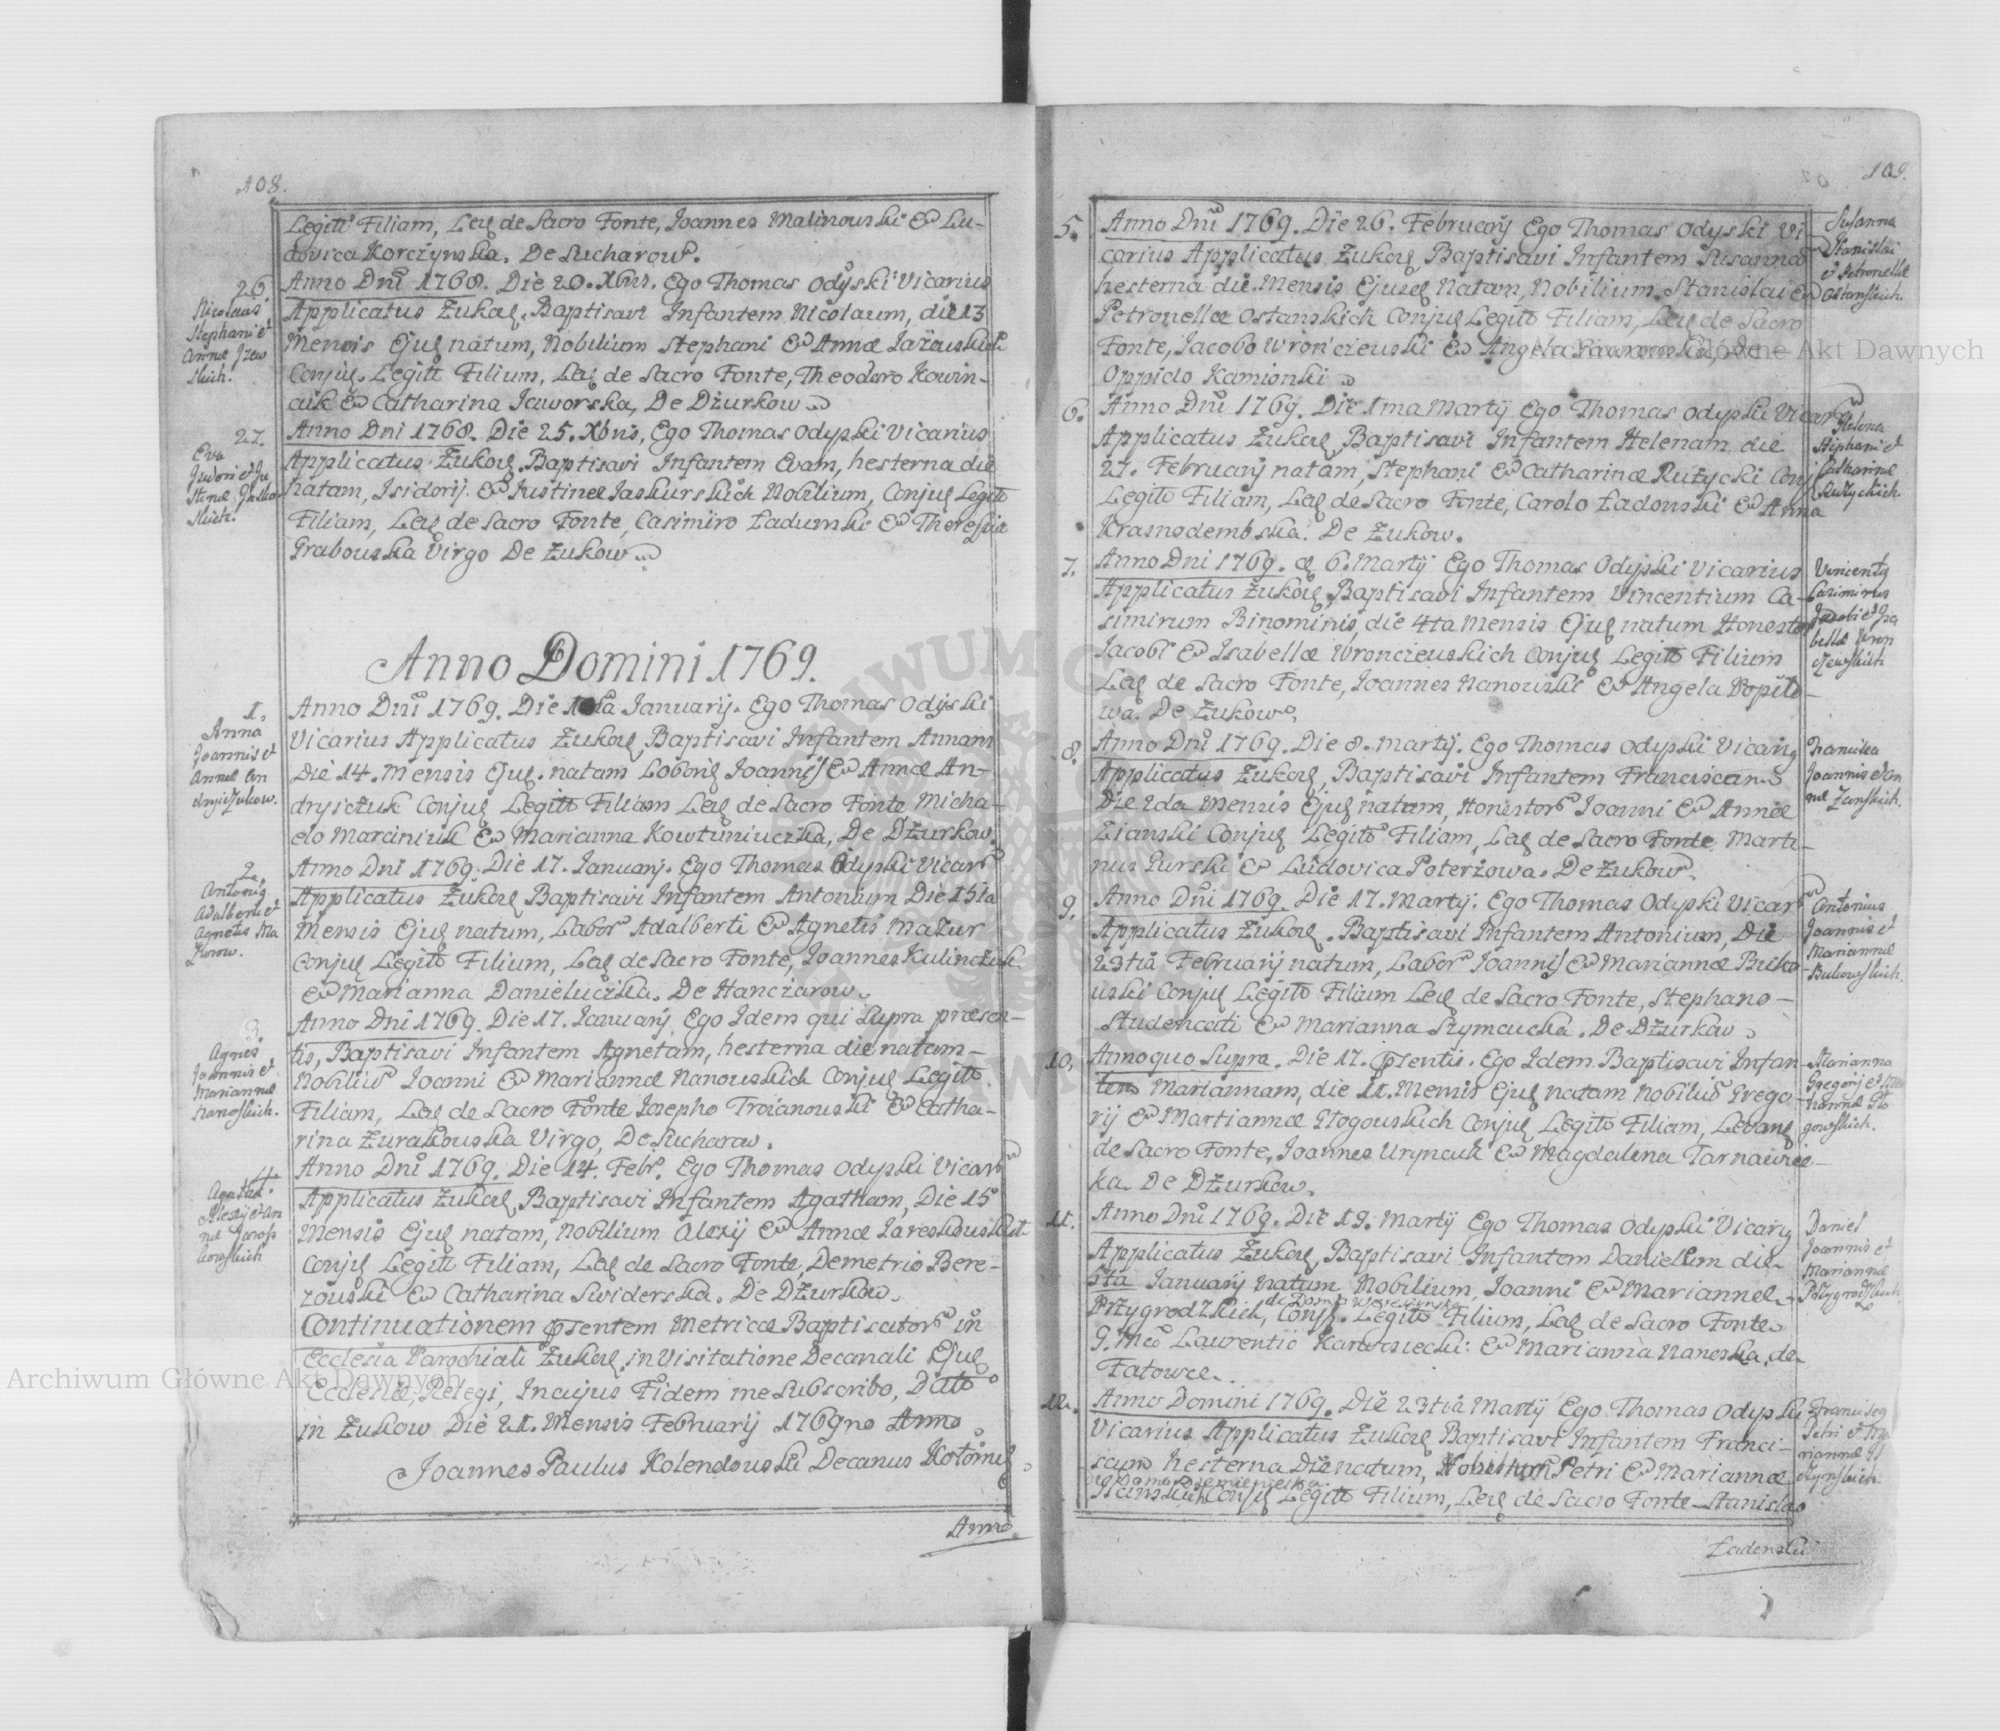 108.
Legiti Filiam, Leq de Sacro Fonte, Joannes Malinouski & Lu-
dovica Korczynska. De Sucharow.
26
Nicolaus
Stephani et
Annæ
skich.
Anno Dni 1768. Die 20. Xbris. Ego Thomas Odyski Vicarius
Applicatus Żukoq, Baptisavi Infantem Nicolaum, die 13
Mensis Ejuq natum, Nobilium Stephani & Annæ
Conjuq. Legiti Filium, Leq de Sacro Fonte, Theodoro Kowin-
cuk & Catharina Jaworska, De Dżurkow
27.
Eva
Isidori et Ju
stinæ Jasko
skich.
Anno Dni 1768. Die 25. Xbris, Ego Thomas Odyski Vicarius
Applicatus Żukoq, Baptisavi Infantem Evam, hesterna die
natam, Isidorij & Justinæ Jaskurskich Nobilium, Conjuq Legito
Filiam, Leq de Sacro Fonte, Casimiro Ładumski & Theressia
Grabouska Virgo De Żukow
Anno Domini 1769.
1.
Anna
Joannis et
Annæ An
dryiczukow.
Anno Dni 1769. Die Januarij. Ego Thomas Odyski
Vicarius Applicatus Żukoq, Baptisavi Infantem Annam
Die 14. Mensis Ejuq. natam Laboriq Joannis & Annæ An-
drysiczuk Conjuq Legito Filiam Leq de Sacro Fonte Micha-
elo Marciniuk & Marianna Kowtuniuczka, De Dżurkow.
2.
Antoniq
Adalberti et
Agnetis Ma
zurow.
Anno Dni 1769. Die 17. Januarij. Ego Thomas Odyski Vicar
Applicatus Żukoq Baptisavi Infantem Antonium Die 15ta
Mensis Ejuq natum, Labor Adalberti & Agnetis Mazur
Conjuq Legito Filium, Leq de Sacro Fonte, Joannes Kulinczuk
& Marianna Danieluczka. De Hanczarow.
3
Agnes
Joannis et
Mariannæ
Nanoskich.
Anno Dni 1769. Die 17. Januarij, Ego Idem qui Supra præsen-
tis, Baptisavi Infantem Agnetam, hesterna die natam-
Nobiliū Joanni & Mariannæ Nanouskich Conjuq Legito
Filiam, Leq de Sacro Fonte Josepho Troianouski & Catha-
rina Żurakouska Virgo, De Sucharow.
4.
Agatha
Alexij et An
næ Jaros
kowskich
Anno Dni 1769. Die 14. Febr. Ego Thomas Odyski Vicar
Applicatus Żukoq, Baptisavi Infantem Agatham, Die 15
Mensis Ejuq natam, Nobilium Alexij & Annæ
Conjuq Legiti Filiam, Leq de Sacro Fonte, Demetrio Bere-
zouski & Catharina Swiderska. De Dżurkow.
Continuationem Psentem Metricæ Baptisator in
Ecclesia Parochiali Żukoq, in Visitatione Decanali Ejuq
Ecclesiæ, Relegi, In cujus Fidem me Subscribo, Dato
in Żukow Die 21. Mensis Februarij 1769no Anno
Joannes Paulus Kolendouski Decanus Kołomyq
Anno
109.
5.
Anno Dni 1769. Die 26. Februarij Ego Thomas Odyski Vi-
carius Applicatus Żukoq Baptisavi Infantem Susanna
hesterna die Mensis Ejusq Natam, Nobilium Stanislai &
Petronellæ Ostanskich Conjuq Legito Filiam, Leq de Sacro
Fonte, Jacobo Wronczewski & Angela
Oppido Kamionki
Susanna
Stanislai
et Petronellæ
Ostanskich.
6.
Anno Dni 1769. Die 1ma Martij Ego Thomas Odyski Vicar
Applicatus Żukoq, Baptisavi Infantem Helenam die
27. Februarij natam, Stephani & Catharinæ Rużycki Conj
Legito Filiam, Leq de Sacro Fonte, Carolo Ładonski & Anna
Krasnodembska. De Żukow.
Helena
Stephani et
Catharinæ
Rużyckich.
7.
Anno Dni 1769. D 6. Martij Ego Thomas Odyski Vicarius
Applicatus Żukoq, Baptisavi Infantem Vincentium Ca-
simirum Binominis, die 4ta Mensis Ejuq natum Honestor
Jacobi & Isabellæ Wronczeuskich Conjuq Legito Filium
Leq de Sacro Fonte, Joannes Nanouski & Angela Popilo-
wa. De Żukow.
Vincentq
Casimirus
Jacobi et Isa
bellæ Wron
czewskich
8.
Anno Dni 1769. Die 8. Martij. Ego Thomas Odyski Vicariq
Applicatus Żukoq, Baptisavi Infantem Franciscam
Die 2da Mensis Ejuq natam, Honestor Joanni & Annæ
Zianski Conjuq Legito Filiam, Leq de Sacro Fonte Marti-
nus Purski & Ludovica Poterżowa. De Żukow.
Francisca
Joannis et An
næ Zanskich.
9.
Anno Dni 1769. Die 17. Martij. Ego Thomas Odyski Vicar
Applicatus Żukoq. Baptisavi Infantem Antonium, Die
23tia Februarij natum, Labor Joannis & Mariannæ Buko-
uski Conjuq Legito Filium Leq de Sacro Fonte, Stephano-
Studencati & Marianna Szymcucka. De Dżurkow
Antonius
Joannis et
Mariannæ
Bukowskich.
10.
Anno quo Supra. Die 17. Psentis. Ego Idem Baptisavi Infan
tem Mariannam, die 11. Mensis Ejuq natam Nobiliū Grego-
rij & Martiannæ Głogouskich Conjuq Legito Filiam, Levanq
de Sacro Fonte, Joannes Uryncuk & Magdalena Tarnawiec-
ka. De Dżurkow.
Marianna
Gregorij et Ma
riannæ Gło
gowskich.
11.
Anno Dni 1769. Die 19. Martij Ego Thomas Odyski Vicariq
Applicatus Żukoq, Baptisavi Infantem Daniellem die
Januarij natum Nobilium, Joanni & Mariannæ
de Domo
Przygrodzkich, Conjuq. Legito Filium, Leq de Sacro Fonte
G. Mco Laurentio & Marianna Naneska, de
Fatowce.
Daniel
Joannis et
Mariannæ
Przygrodzkich
12.
Anno Domini 1769. Die 23tia Martij Ego Thomas Odyski
Vicarius Applicatus Żukoq Baptisavi Infantem Franci-
scum hesterna Die natum, Petri & Mariannæ
de Domo
Conjuq Legito Filium, Leq de Sacro Fonte Stanislao
Franciscq
Petri et Ma
riannæ
Ładonski
Archiwum Główne Akt Dawnych
Archiwum Główne Akt Dawnych